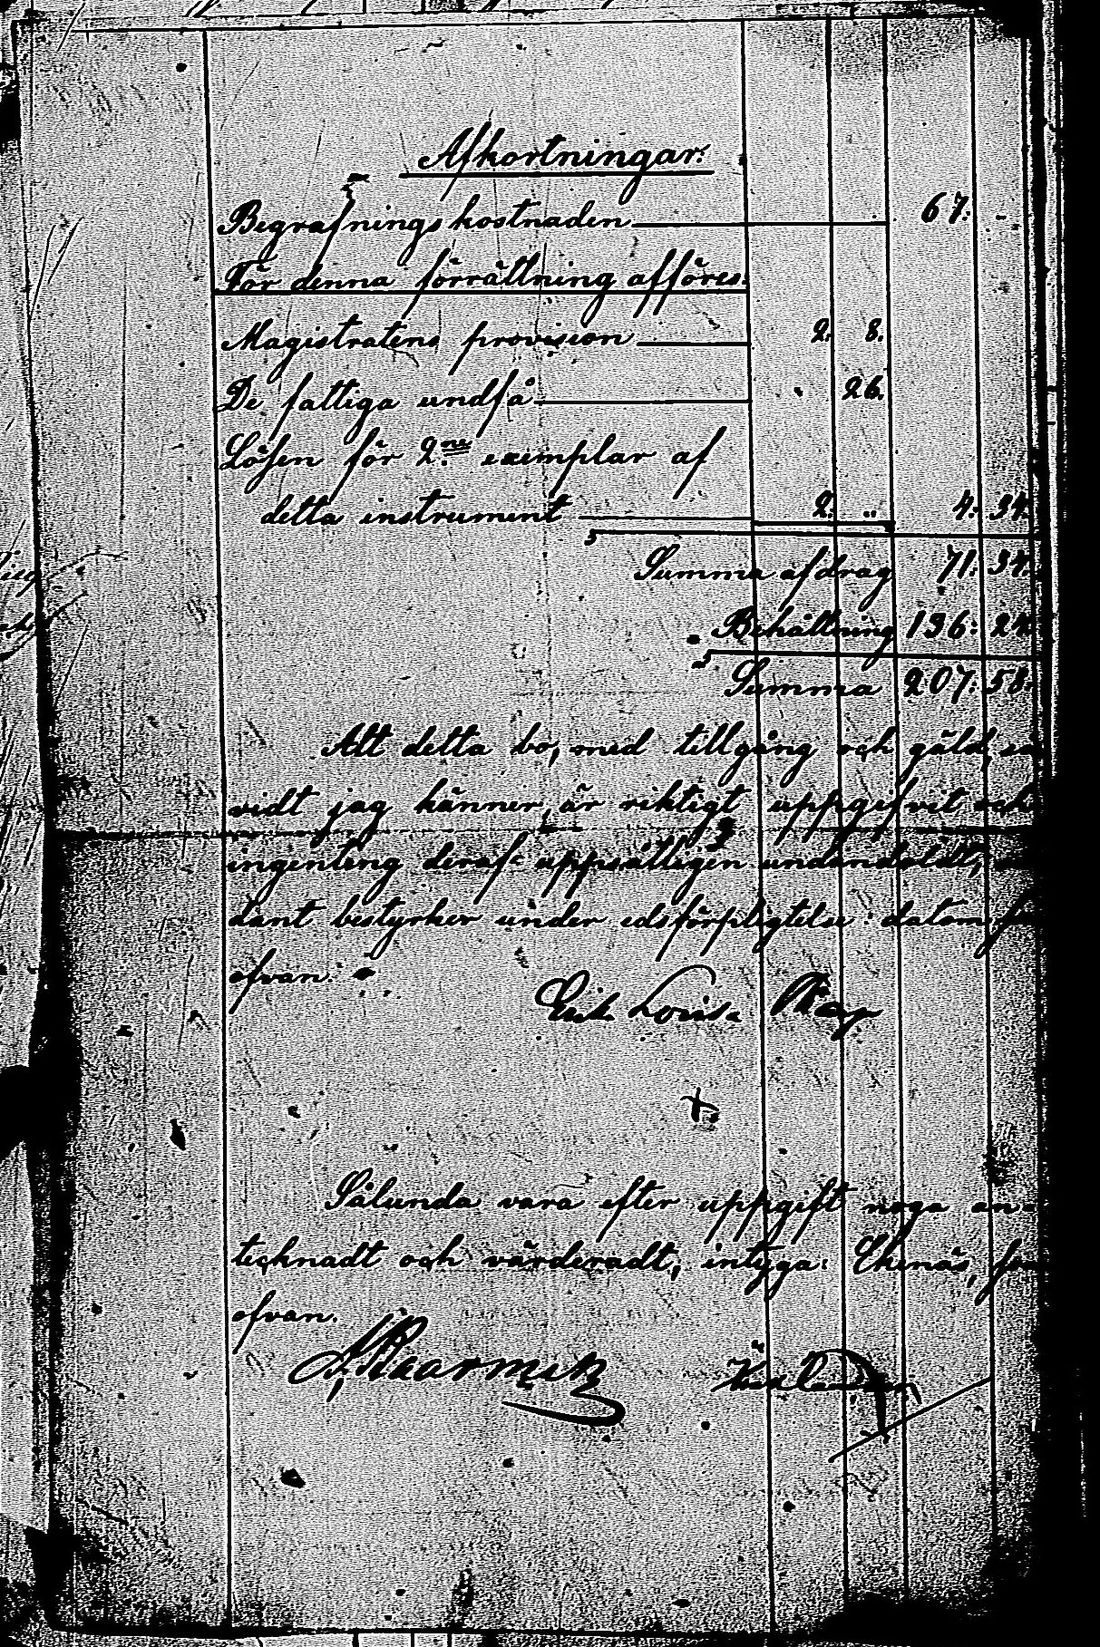 Afkortningar:
Begrafningskostnaden 67. -
För denna förrättning afföres:
Magistratens provision 2. 8.
De fattiga undfå . 26.
Lösen för 2ne exemplar af
detta instrument 2. „ 4. 34.
Summa afdrag 71. 34.
Behållning 136. 24.
Summa 207. 58.
Att detta bo, med tillgång och gäld, så
vidt jag känner, är riktigt uppgifvit och
ingenting deraf uppsåtligen undandoldt,
dant bestyrker under edsförpligtelse datom
ofvan.
Erik Lovisa
Sålunda vara efter uppgift noga an-
tecknadt och värderadt, intyga: Ekenäs,
ofvan.